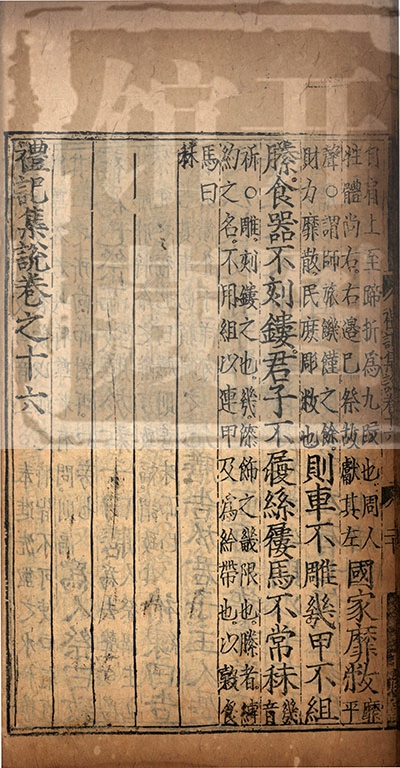 自肩上至蹄折為九段也周人
牲體尚右右邊已祭故獻其左
國家靡敝
靡
平
聲○謂師旅饑饉之餘
財力靡散民庶彫敝也
則車不雕幾甲不組
縢食器不刻鏤君子不履絲屨馬不常秣
幾
音
祈○雕刻鏤之也幾漆飾之畿限也縢者縛
約之名不用組以連甲及為紟帶也以穀食
馬曰
秣
禮記集說卷之十六